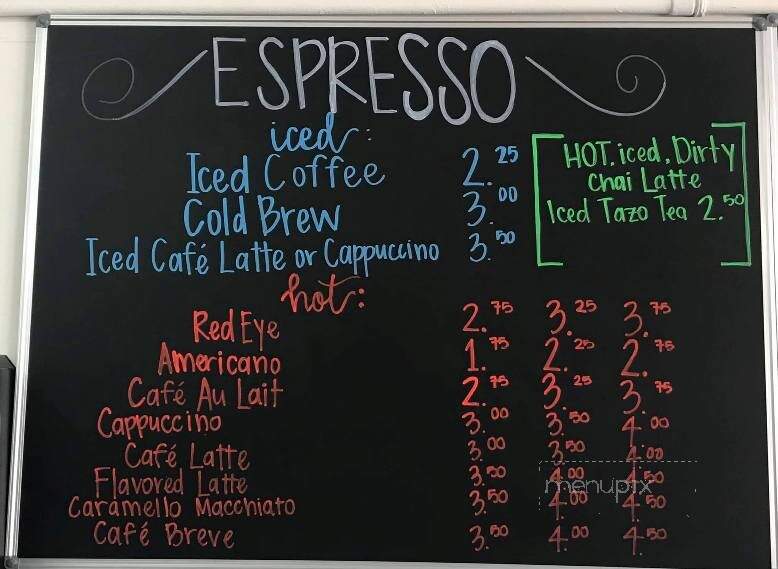 ESPRESSO
iced:
Iced Coffee 2.25
Cold Brew 3.00
Iced Café Latte or Cappuccino 3.50
HOT, iced, Dirty
Chai Latte
Iced Tazo Tea 2.50
hot:
Red Eye 2.75 3.25 3.75
Americano 1.75 2.25 2.75
Café Au Lait 2.75 3.25 3.75
Cappuccino 3.00 3.50 4.00
Café Latte 3.00 3.50 4.00
Flavored Latte 3.50 4.00 4.50
Caramello Macchiato 3.50 4.00 4.50
Café Breve 3.50 4.00 4.50
menupix